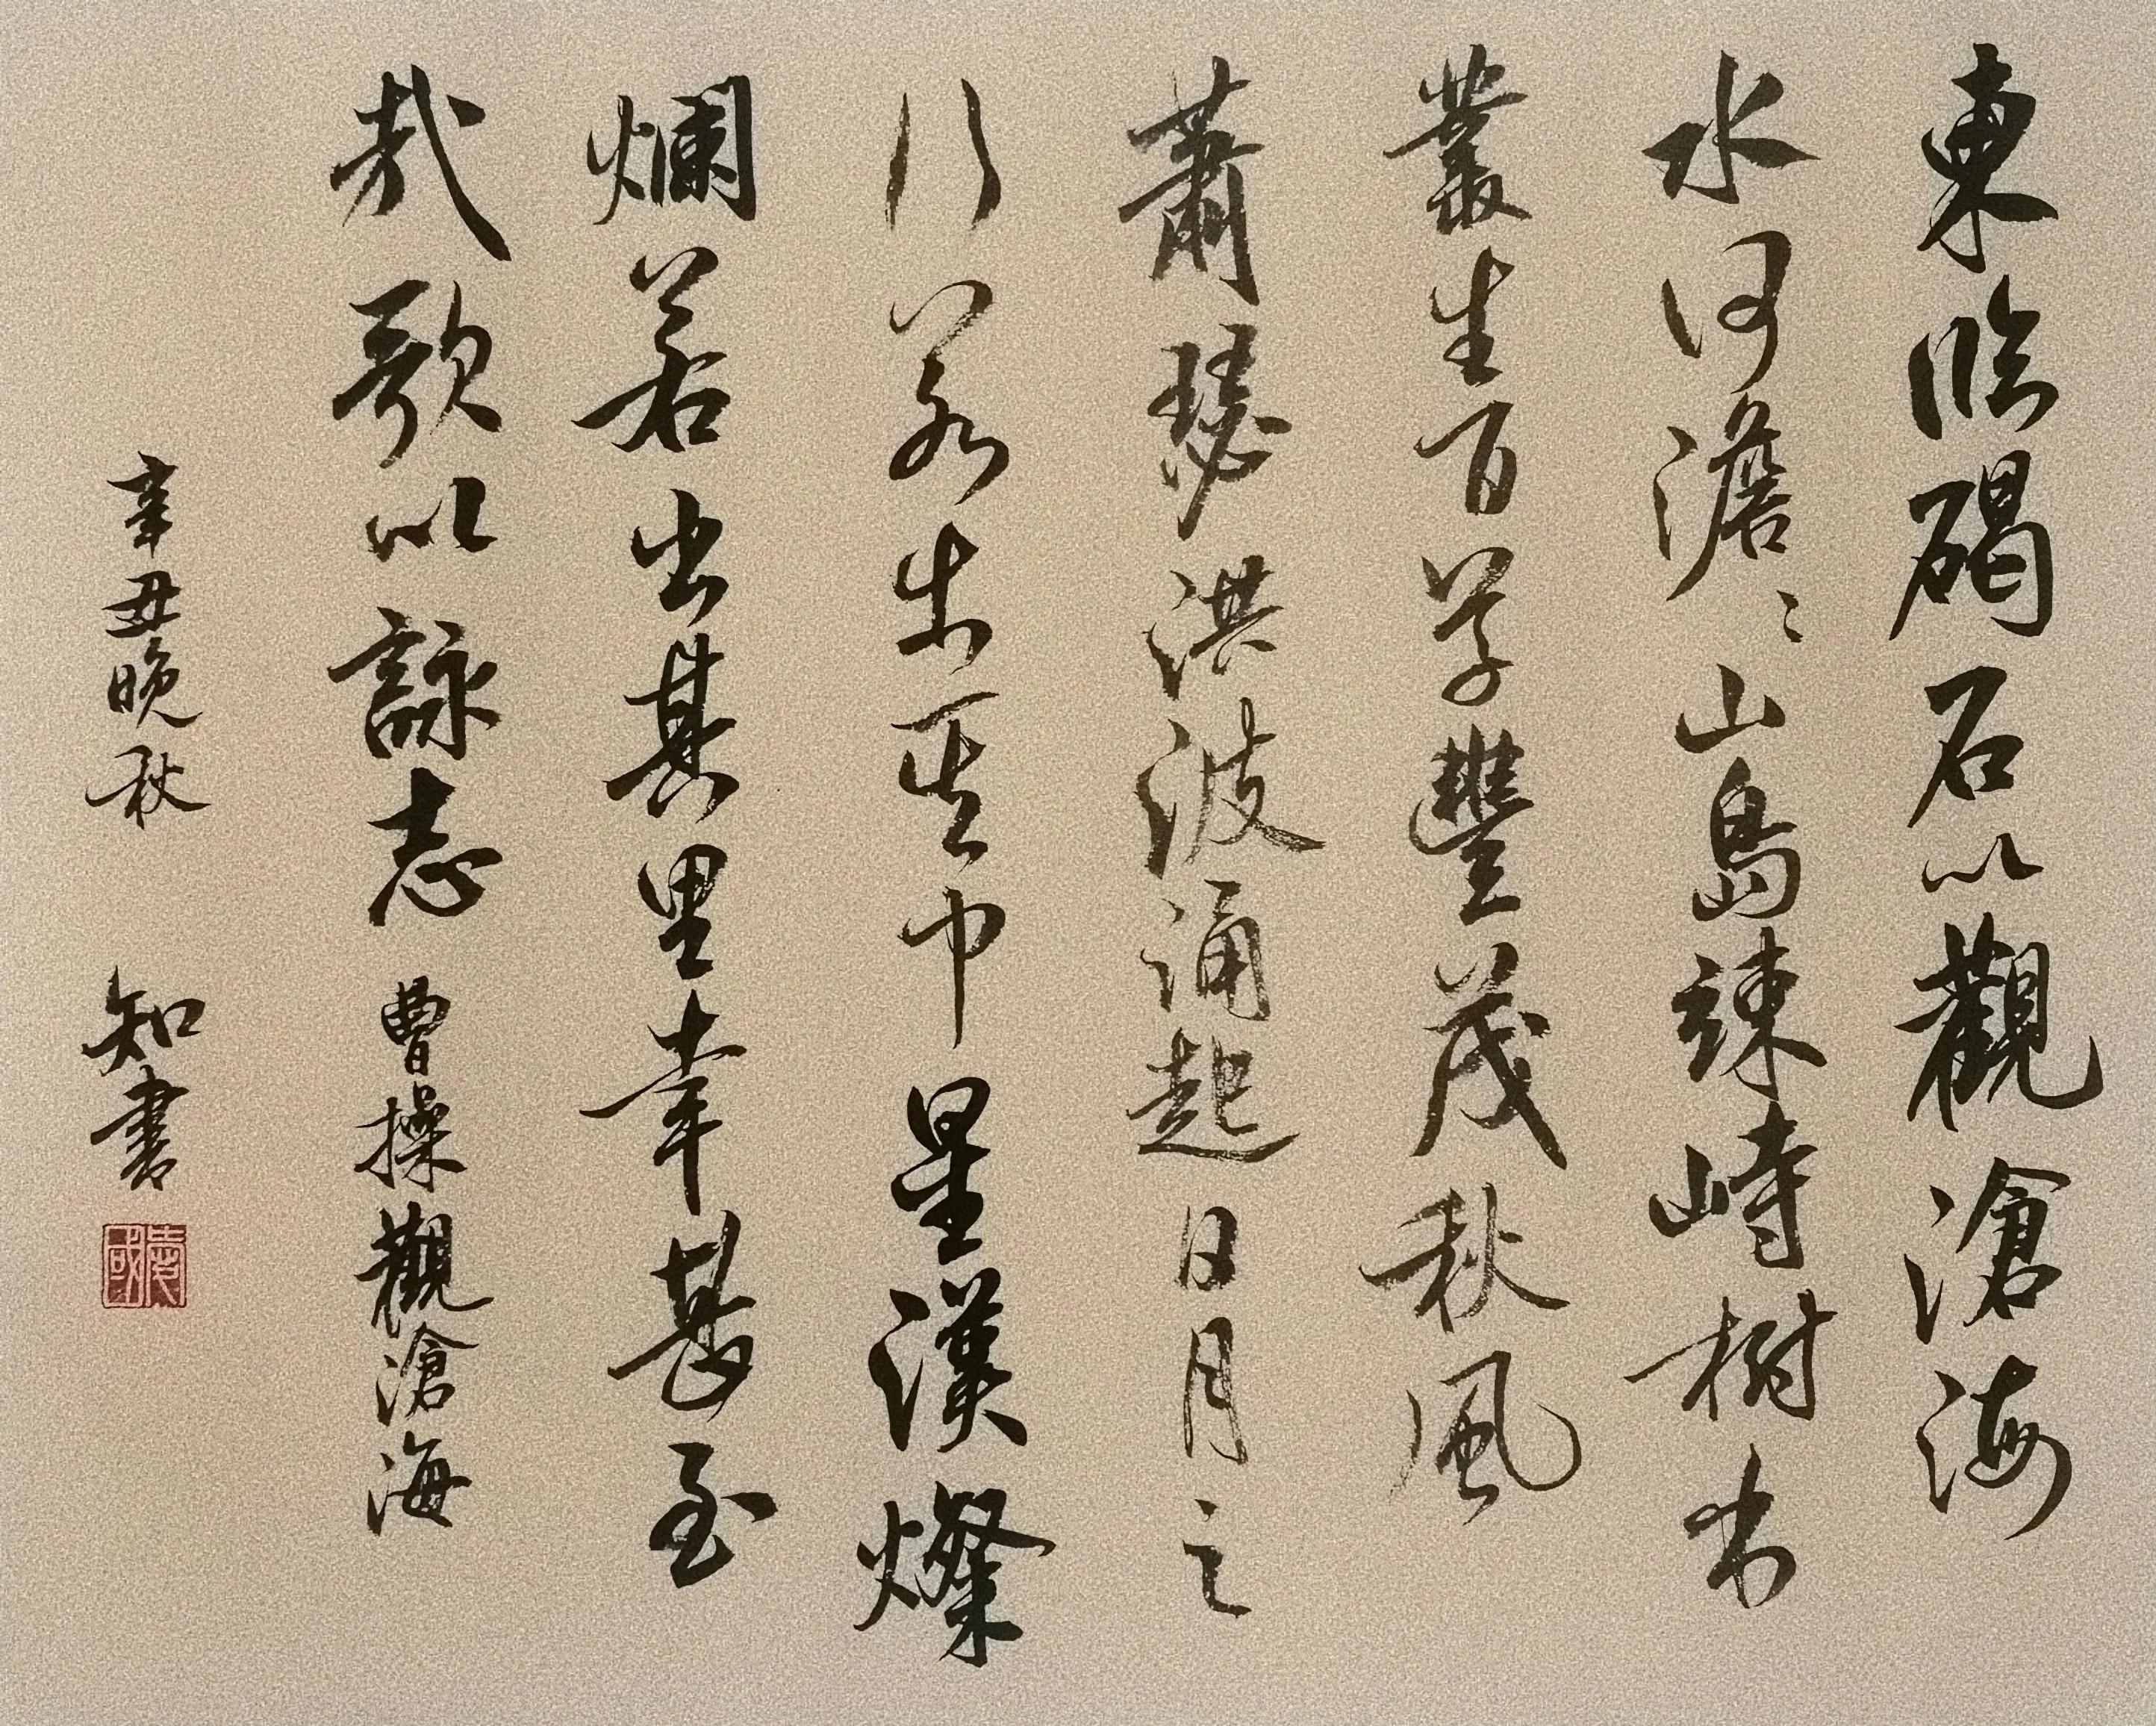 東臨碣石以觀滄海
水何澹〻山島竦峙樹木
叢生百草豐茂秋風
蕭瑟洪波涌起日月之
行若出其中星漢燦
爛若出其里幸甚至
哉歌以詠志 曹操觀滄海
辛丑晚秋 知書